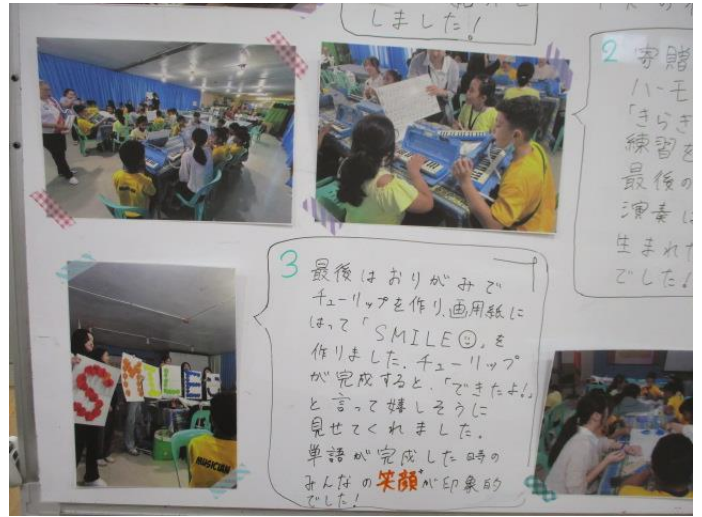 しました!
2 寄贈
ハーモ
「きらき
練習を
最後の
演奏は
生まれた
でした!
3 最後はおりがみで
チューリップを作り、画用紙に
はって「SMILE☺」を
作りました。チューリップ
が完成すると、「できたよ!」
と言って嬉しそうに
見せてくれました。
単語が完成した時の
みんなの笑顔が印象的
でした!
SMILE
MUSICIAN